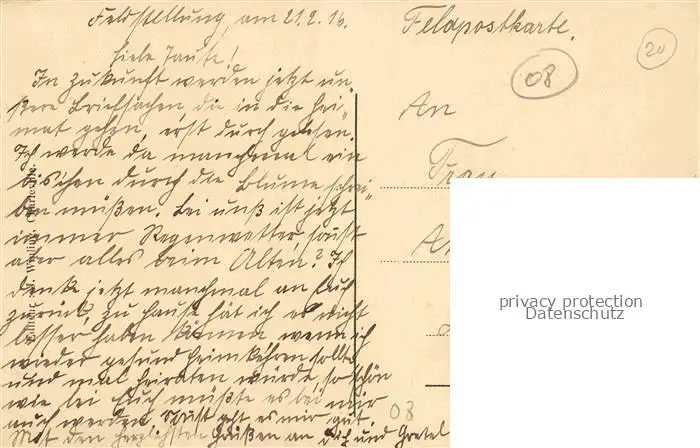 Feldstellung, am 21.2.16.
Feldpostkarte.
20
08
Liebe Tante!
In Zukunft werden jetzt un-
sere Briefsachen die in die Hei-
mat gehen, erst durch gelesen.
Ich werde da manchmal ein
bischen durch die Blume schrei-
ben müßen. Bei unß ist jetzt
immer Regenwetter, sonst
aber alles beim Alten? Ich
denke jetzt manchmal an Euch
zurück, zu Hause hät ich es nicht
besser haben können, wenn ich
wieder gesund heimkehren sollte
und mal heiraten würde, so schön
wie bei Euch müßte es bei mir
auch werden. Sonst geht es mir gut
Mit den herzlichsten Grüßen an Dich und Gretel
An
Frau
An
08
privacy protection
Datenschutz